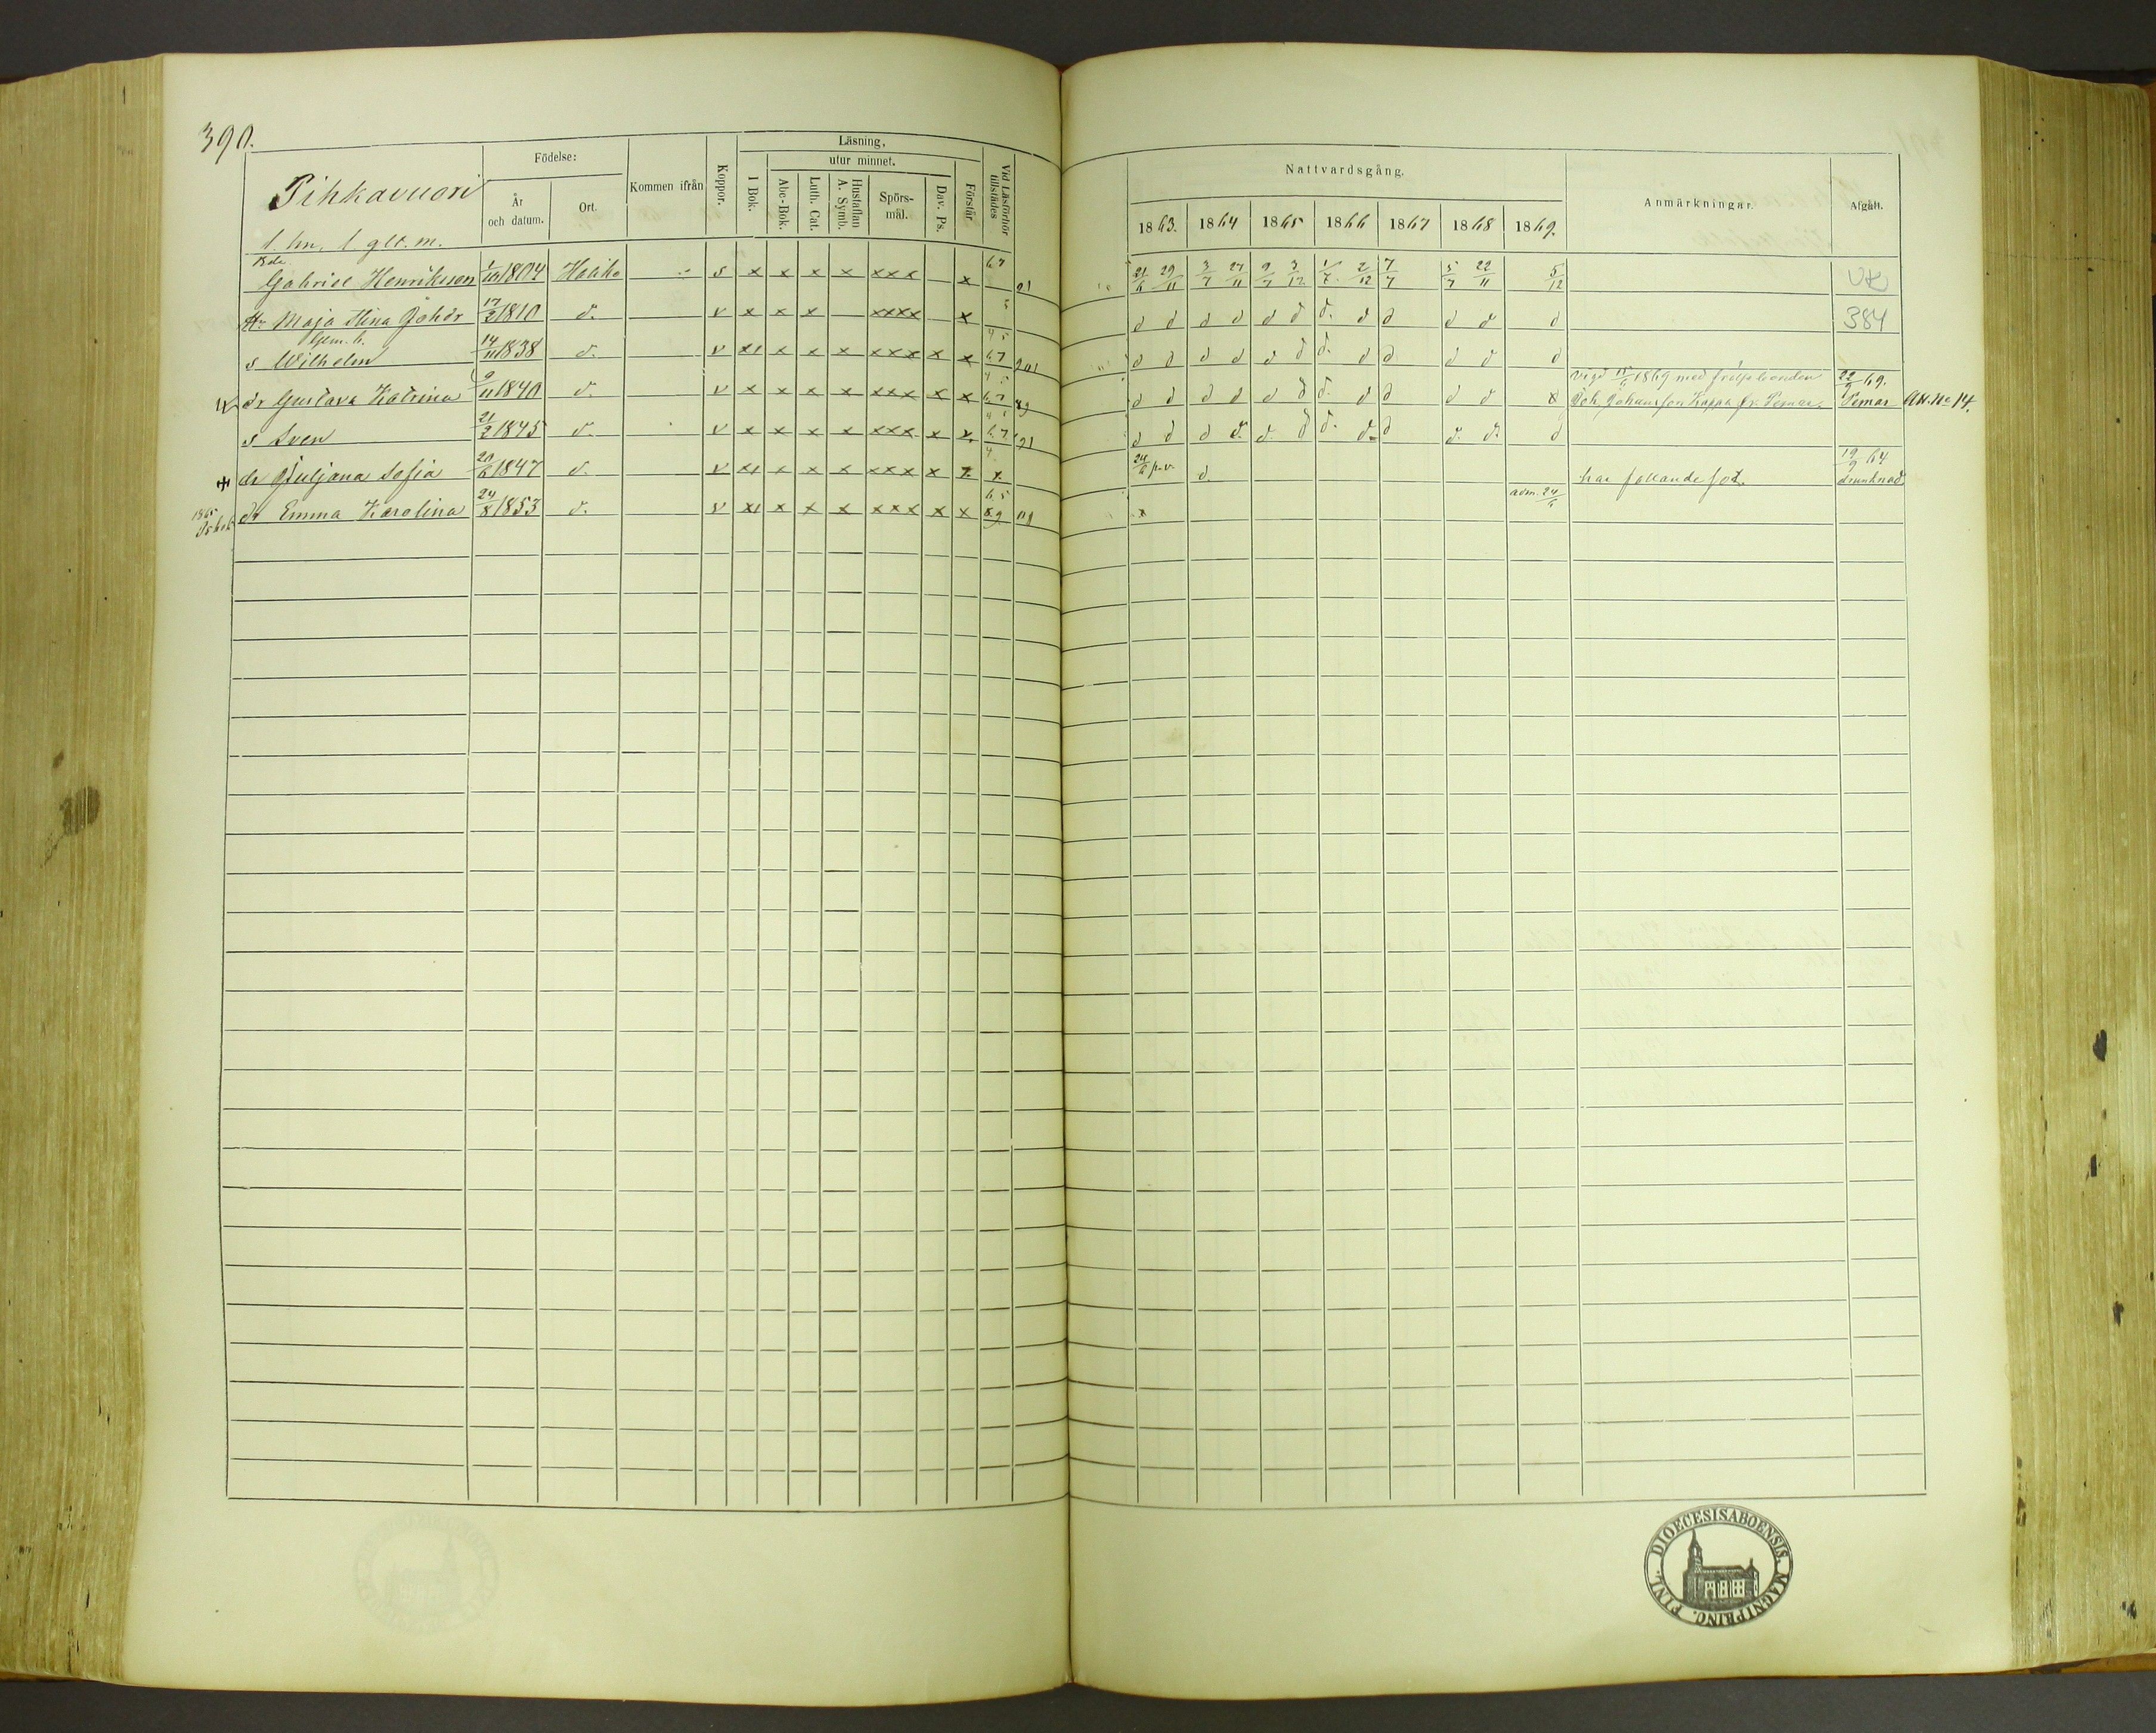 390.
Pihkavuori
1. hn, 1 glt. m.
Födelse:
År och datum.
Ort.
Kommen ifrån
Koppor.
Läsning,
I Bok.
utur minnet.
Abc-Bok.
Luth. Cat.
Hustaflan A. Symb.
Spörs-mål.
Dav. Ps.
Förstår
Vid Läsförhör tillstädes
Nattvardsgång.
1863. 1864 1865 1866 1867 1868 1869.
Anmärkningar.
Afgått.
Bde
Gabriel Henriksson 1/10 1804 Haliko s x x x x xxx x 6.7 21/6 29/11 3/7 27/11 9/7 3/12 1/7 2/12 7/7 5/7 22/11 5/12 UK
Hu Maja Stina Johdr 17/2 1810 d. v x x x xxxx x 5 d d d d d d d. d d d d d 384
s Wilhelm 14/11 1838 d. v xx x x x xxx x x 6.7 d d d d d d d. d d d d d
dr Gustava Katrina 9/11 1840 d. v x x x x xxx x x 6.7 89 d d d d d d d. d d d d d vigd 1869 med frälsebonden Joh. Johansson Kappa fr. Pemar. 22/9 69. Pemar Att. No 14.
s Sven 21/2 1845 d. v x x x x xxx x x. 6.7 d d d d. d. d d. d. d d. d. d
dr Juljana Sofia 20/6 1847 d. v xx x x x xxx x x. x. 24/6 p.v. d. har fallande sot. 19/9 64 drunknad
1865
dr Emma Karolina 24/8 1853 d. v xx x x x xxx x x 6 5 8.9 x adm. 24/
DIOECESIS ABOENSIS. MAGNI PRINC. FINL.